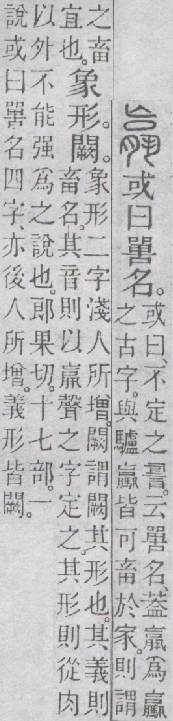 𣎆或曰嘼名。
或曰、不定之䛐。云嘼名、葢𣎆爲驘
之古字。與驢驘皆可畜於家。則謂
之畜
宜也。
象形。闕。
象形二字淺人所增。闕謂闕其形也。其義則
畜名。其音則以𣎆聲之字定之。其形則從肉
以外不能强爲之說也。郎果切。十七部。一
說或曰嘼名四字、亦後人所增。義形皆闕。